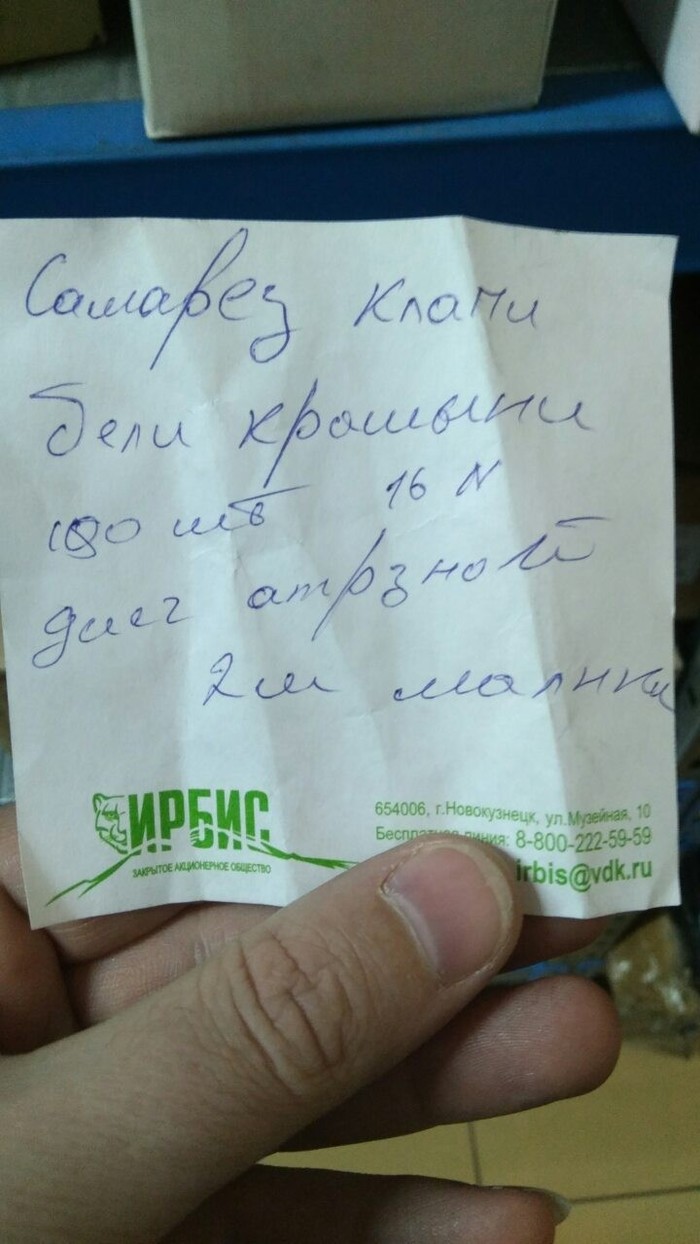 Самарез клапи
бели крошыни
100 шт 16 N
диег атрзной
2ш малнки
ИРБИС
ЗАКРЫТОЕ АКЦИОНЕРНОЕ ОБЩЕСТВО
654006, г.Новокузнецк, ул.Музейная, 10
Бесплатная линия: 8-800-222-59-59
irbis@vdk.ru